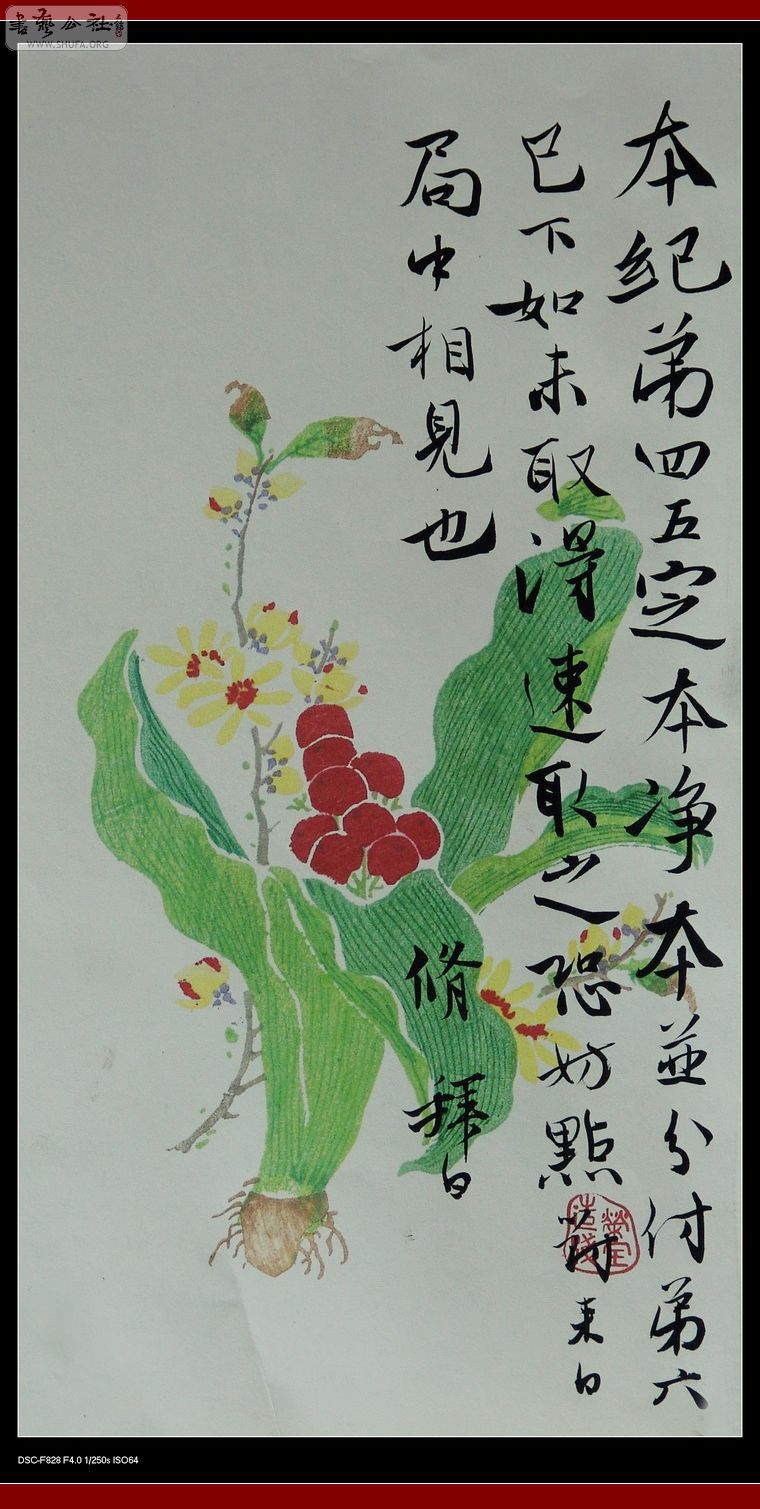 書藝公社
WWW.SHUFA.ORG
本紀弟四五定本净本並分付弟六
已下如未取得速取之恐妨點對来日
局中相見也
脩拜白
DSC-F828 F4.0 1/250s ISO64